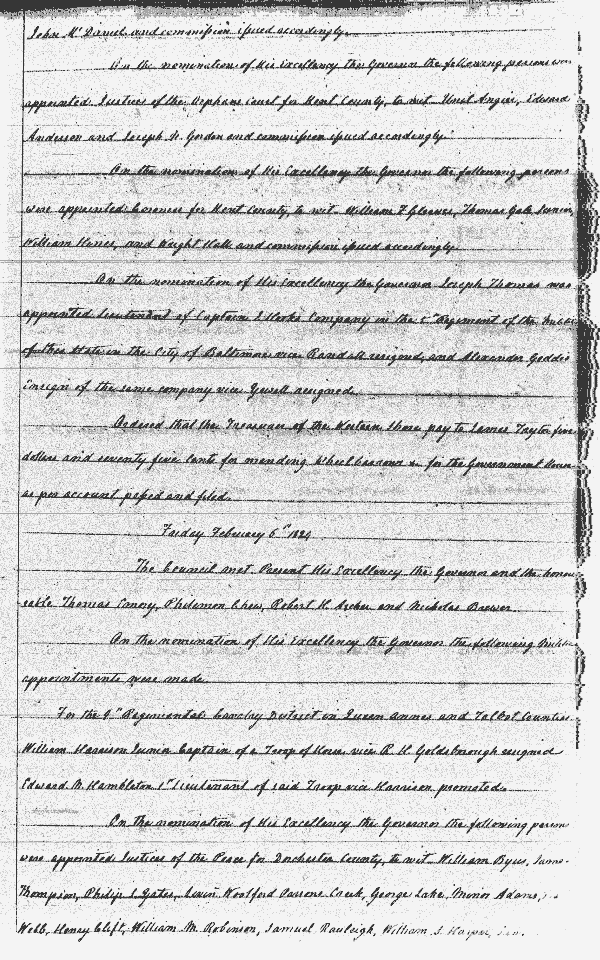 John Mc Daniel and commission issued accordingly.
On the nomination of His Excellency the Governor the following persons were
appointed Justices of the Orphans Court for Kent County, to wit Unit Angier, Edward
Anderson and Joseph N. Gordon and commission issued accordingly.
On the nomination of His Excellency the Governor the following persons
were appointed Coroners for Kent County, to wit William F Gleaves, Thomas Gale Junior,
William Hines, and Wright Hall and commission issued accordingly.
On the nomination of His Excellency the Governor Joseph Thomas was
appointed Lieutenant of Captain Company in the Regiment of the Militia
of this State in the City of Baltimore vice Randall resigned, and Alexander Geddis
Ensign of the same company vice Yewell resigned.
Ordered that the Treasurer of the Western Shore pay to James Taylor five
dollars and seventy five cents for mending Wheel barrows &c for the Government House
as per account passed and filed.
Friday February 6th 1829
The Council met Present His Excellency the Governor and the honor
able Thomas Emory, Philemon Chew, Robert H. Archer and Nicholas Brewer.
On the nomination of His Excellency the Governor the following Militia
appointments were made
For the 9th Regimental Cavalry District in Queen Annes and Talbot Counties.
William Harrison Junior Captain of a Troop of Horse vice R. H. Goldsborough resigned
Edward N. Hambleton 1st Lieutenant of said Troop vice Harrison promoted.
On the nomination of His Excellency the Governor the following persons
were appointed Justices of the Peace for Dorchester County, to wit William Byus, James
Thompson, Philip L Yates, Levin Woolford Parsons Creek, George Lake, Minos Adams,
Webb, Henry Clift, William M. Robinson, Samuel Rawleigh, William J. Harper,